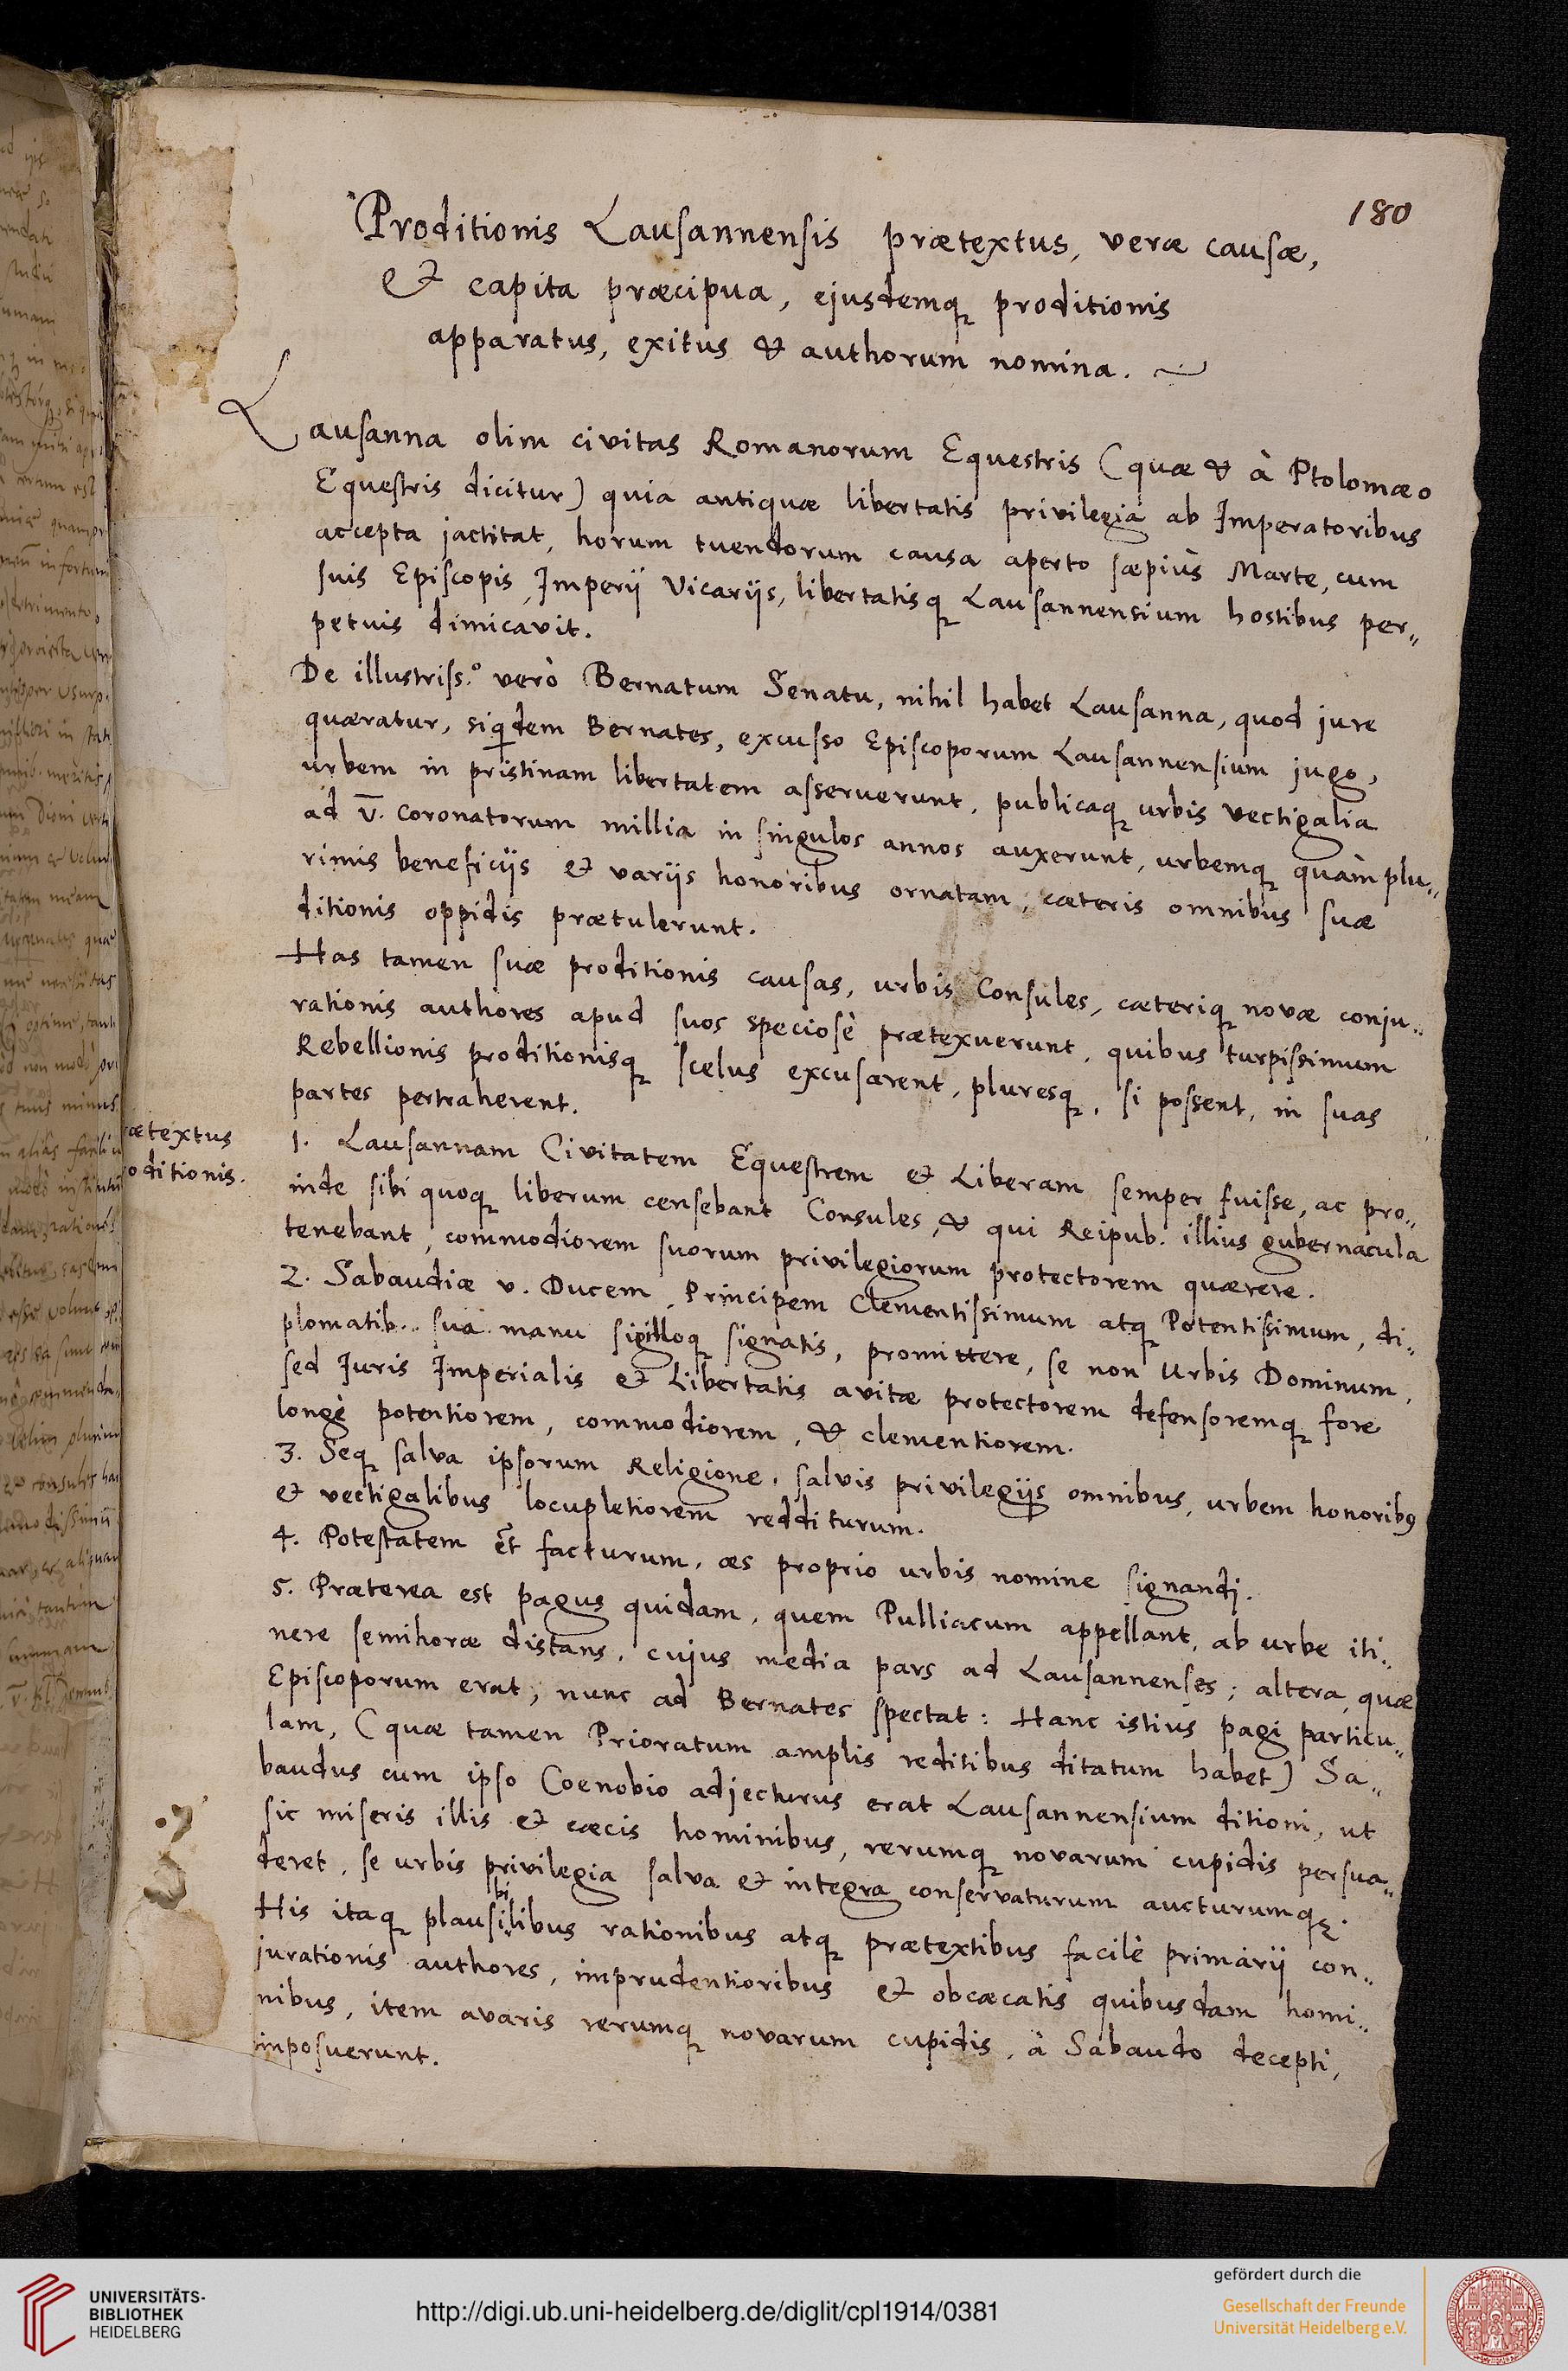 180
Proditionis Lausannensis prætextus, veræ causæ,
et capita præcipua, ejusdemq; proditionis
apparatus, exitus & authorum nomina.
Lausanna olim civitas Romanorum Equestris (quæ & à Ptolomæo
Equestris dicitur) quia antiquæ libertatis privilegia ab Imperatoribus
accepta jactitat, horum tuendorum causa aperto sæpiùs Marte, cum
suis Episcopis, Imperij Vicarijs, libertatisq; Lausannensium hostibus per„
petuis dimicavit.
De illustriss.º verò Bernatum Senatu, nihil habet Lausanna, quod jure
quæratur, siqdem Bernates, excusso Episcoporum Lausannensium jugo,
urbem in pristinam libertatem asseruerunt, publicaq; urbis vectigalia
ad v̅. coronatorum millia in singulos annos auxerunt, urbemq; quàm plu„
rimis beneficijs et varijs honoribus ornatam, cæteris omnibus suæ
ditionis oppidis prætulerunt.
Has tamen suæ proditionis causas, urbis Consules, cæteriq; novæ conju„
rationis authores apud suos speciosè prætexuerunt, quibus turpissimum
Rebellionis proditionisq; scelus excusarent, pluresq;, si possent, in suas
partes pertraherent.
ætextus
oditionis.
1. Lausannam Civitatem Equestrem et Liberam semper fuisse, ac pro„
inde sibi quoq; liberum censebant Consules, & qui Reipub. illius gubernacula
tenebant, commodiorem suorum privilegiorum protectorem quærere.
2. Sabaudiæ v. Ducem, Principem Clementissimum atq; Potentissimum, di„
plomatib. sua manu sigilloq; signatis, promittere, se non Urbis Dominum,
sed Juris Imperialis et Libertatis avitæ protectorem defensoremq; fore
longè potentiorem, commodiorem, & clementiorem.
3. Seq; salva ipsorum Religione, salvis privilegijs omnibus, urbem honorib9
et vectigalibus locupletiorem redditurum.
4. Potestatem et̃ facturum, æs proprio urbis nomine signandj.
5. Præterea est pagus quidam, quem Pulliacum appellant, ab urbe iti„
nere semihoræ distans, cujus media pars ad Lausannenses; altera, quæ
Episcoporum erat, nunc ad Bernates spectat: Hanc istius pagi particu„
lam, (quæ tamen Prioratum amplis reditibus ditatum habet) Sa„
baudus cum ipso Coenobio adjecturus erat Lausannensium ditioni, ut
sic miseris illis et cæcis hominibus, rerumq; novarum cupidis persua„
deret, se urbis privilegia salva et integra conservaturum aucturumq;.
His itaq; plausibilibus rationibus atq; prætextibus facilè primarij con„
jurationis authores, imprudentioribus et obcæcatis quibusdam homi„
nibus, item avaris rerumq; novarum cupidis, à Sabaudo decepti,
imposuerunt.
UNIVERSITÄTS-
BIBLIOTHEK
HEIDELBERG
http://digi.ub.uni-heidelberg.de/diglit/cpl1914/0381
gefördert durch die
Gesellschaft der Freunde
Universität Heidelberg e.V.